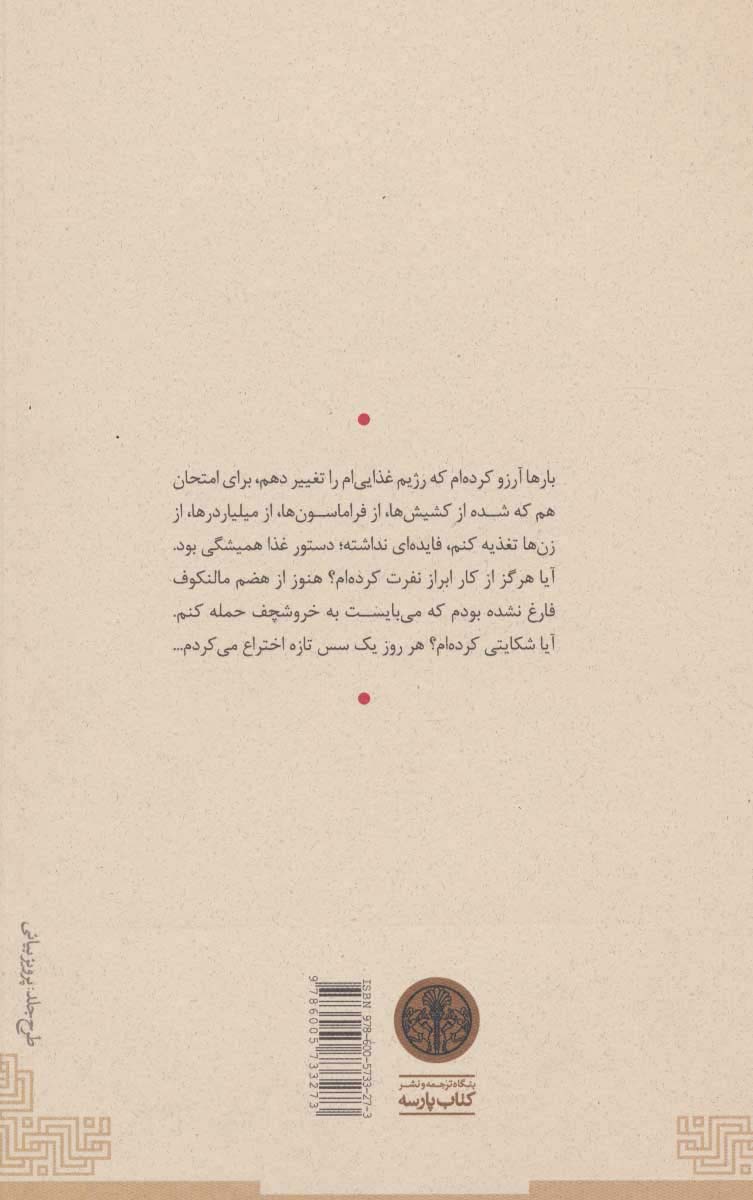 بارها آرزو کرده‌ام که رژیم غذایی‌ام را تغییر دهم، برای امتحان
هم که شده از کشیش‌ها، از فراماسون‌ها، از میلیاردرها، از
زن‌ها تغذیه کنم، فایده‌ای نداشته؛ دستور غذا همیشگی بود.
آیا هرگز از کار ابراز نفرت کرده‌ام؟ هنوز از هضم مالنکوف
فارغ نشده بودم که می‌بایست به خروشچف حمله کنم.
آیا شکایتی کرده‌ام؟ هر روز یک سس تازه اختراع می‌کردم...
طرح جلد: پرویز بیانی
ISBN 978-600-5733-27-3
9 786005 733273
بنگاه ترجمه و نشر
کتاب پارسه